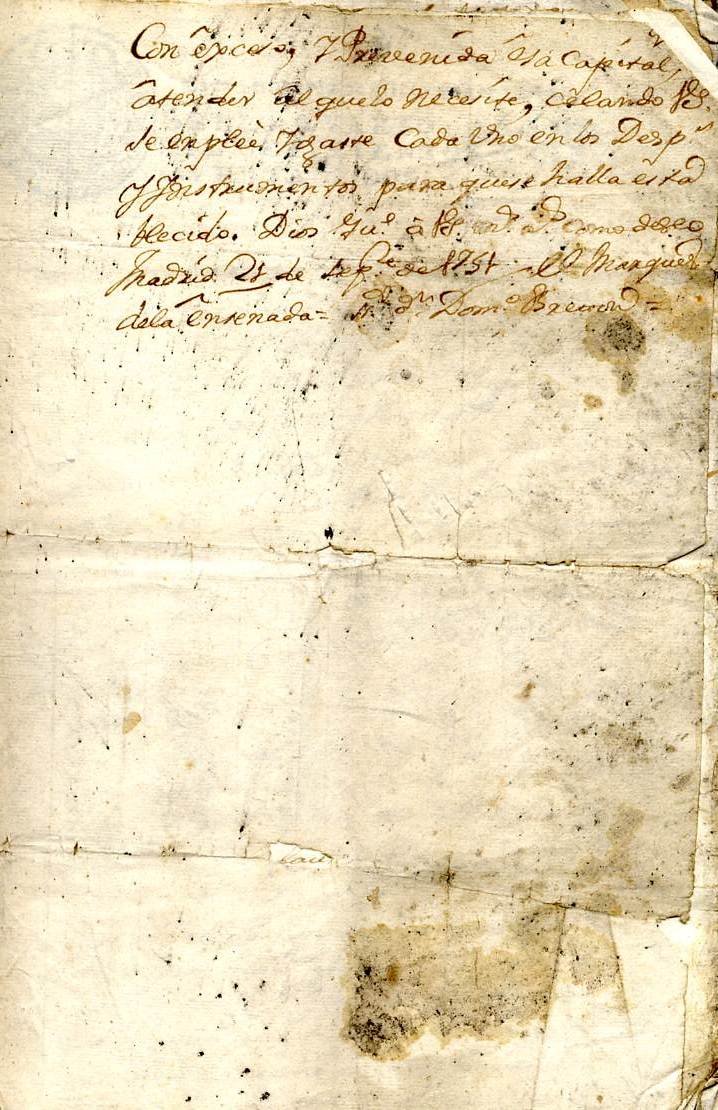 Con êxceso, y Prevenida êsa Capital,
âtender âl que lo necesite, celando VS.
se emplee, y gaste Cada Uno en los Desp.s
y Ynstrumentos para que se halla esta
blecido. Dios gu.e â VS. m.s a.s como deseo
Madrid 21 de Sep.re de 1751 = El Marques
de la Ensenada = S.r d.n Dom.o